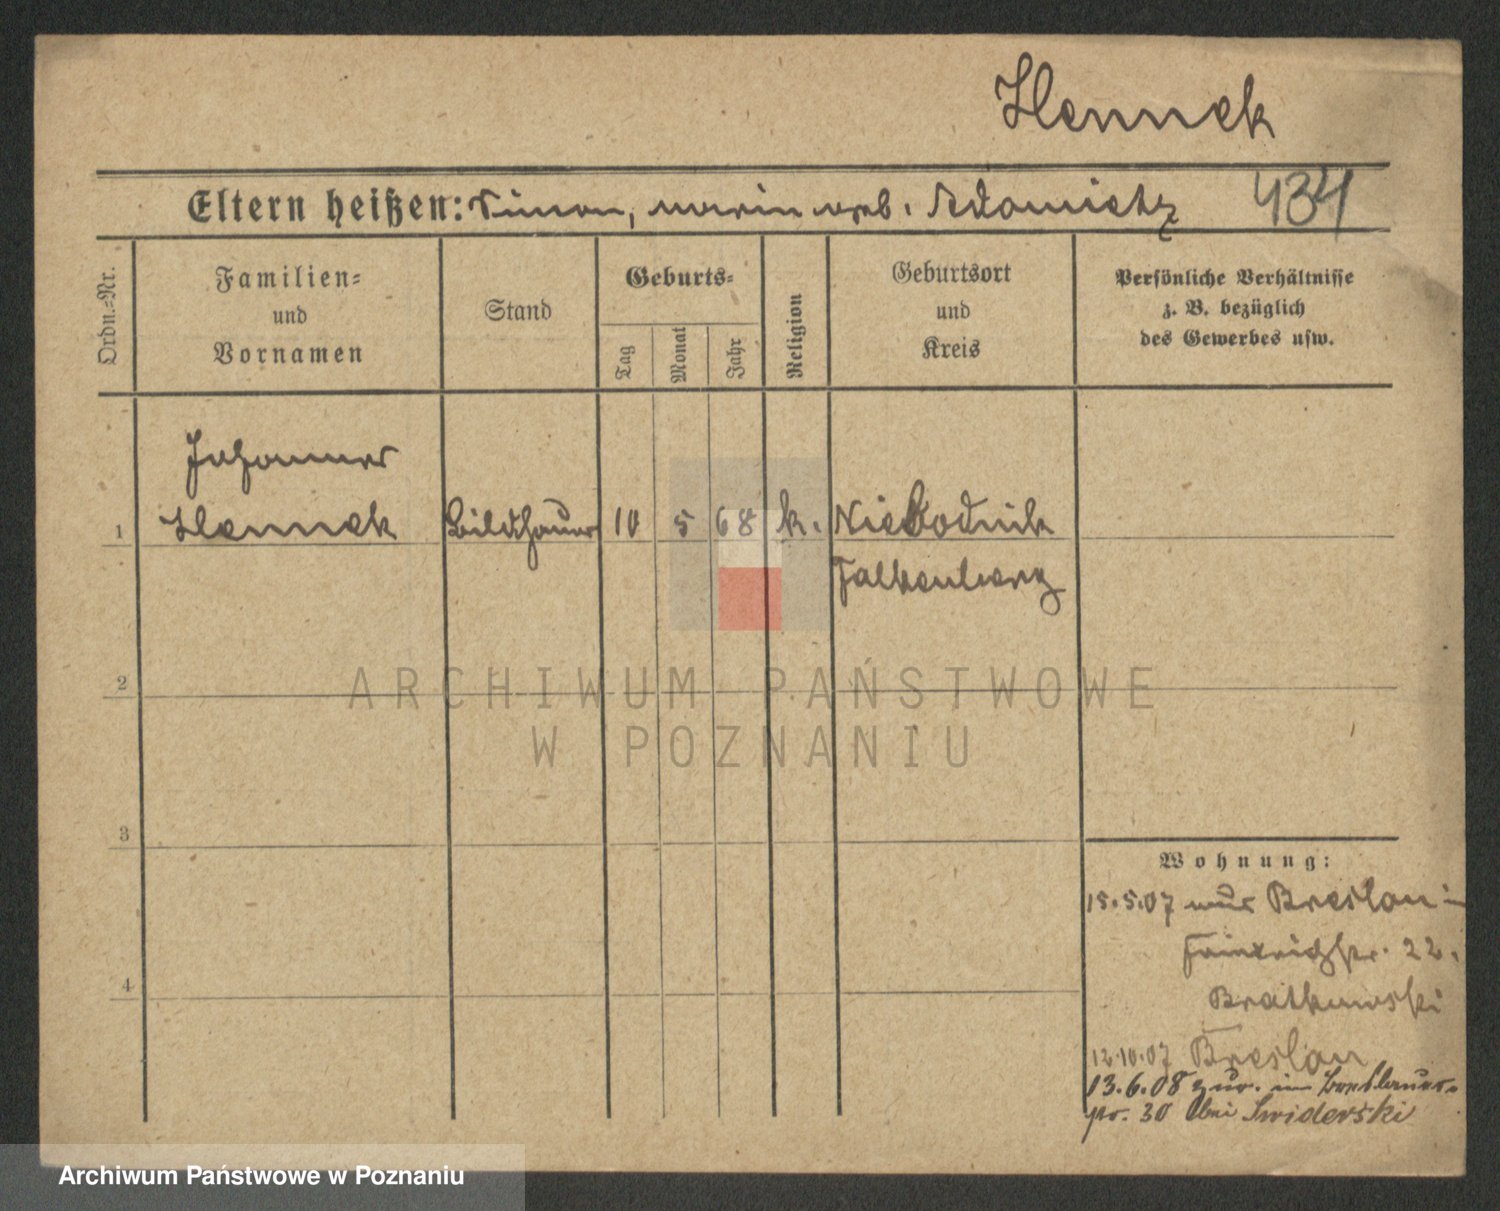 Hennek
Eltern heißen: Simon, Marie geb. Adamietz 434
Ordn.=Nr.
Familien=
und
Vornamen
Stand
Geburts=
Tag
Monat
Jahr
Religion
Geburtsort
und
Kreis
Persönliche Verhältnisse
z. B. bezüglich
des Gewerbes usw.
Johannes
1 Hennek Bildhauer 10 5 68 k. Niebodnik
Falkenberg
2
3
4
Wohnung:
15.5.07 aus Breslau in
Friedrichstr. 22.
Bratkowski
12.10.07 Breslau
13.6.08 zur. in Breslauer-
str. 30 bei Swiderski
ARCHIWUM PAŃSTWOWE
W POZNANIU
Archiwum Państwowe w Poznaniu